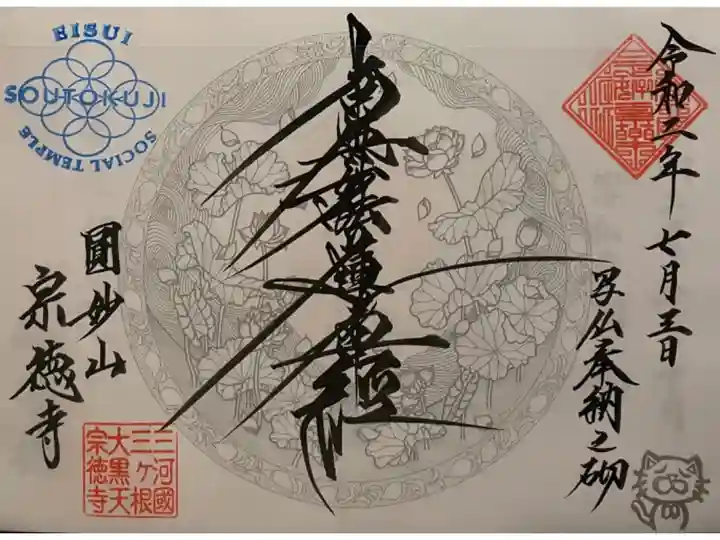 令和二年
七月三日
写仏奉納之砌
南無妙法蓮華経
圓妙山
宗徳寺
EISUI
SOUTOKUJI
SOCIAL TEMPLE
三河國
三ヶ根
大黒天
宗徳寺